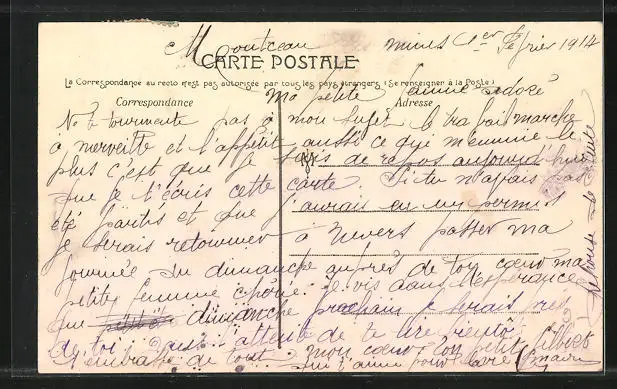 Montceau mines 1er Février 1914
CARTE POSTALE
La Correspondance au recto n'est pas autorisée par tous les pays étrangers (Se renseigner à la Poste)
Ma petite femme adorée
Correspondance
Adresse
Ne te tourmente pas à mon sujet le travail marche
à merveille et l'appétit aussi ce qui m'ennuie le
plus c'est que je suis de repos aujourd'hui
que je t'écris cette carte Si tu n'avais pas
été partis et que j'aurais eu un permis
je serais retourner à Nevers passer ma
journée du dimanche auprès de toi cœur ma
petite femme chérie. je vis dans l'espérance
que dimanche prochain je serais près
de toi dans l'attente de te lire bientôt
t'embrasse de tout mon cœur ton petit
qui t'aime pour la vie